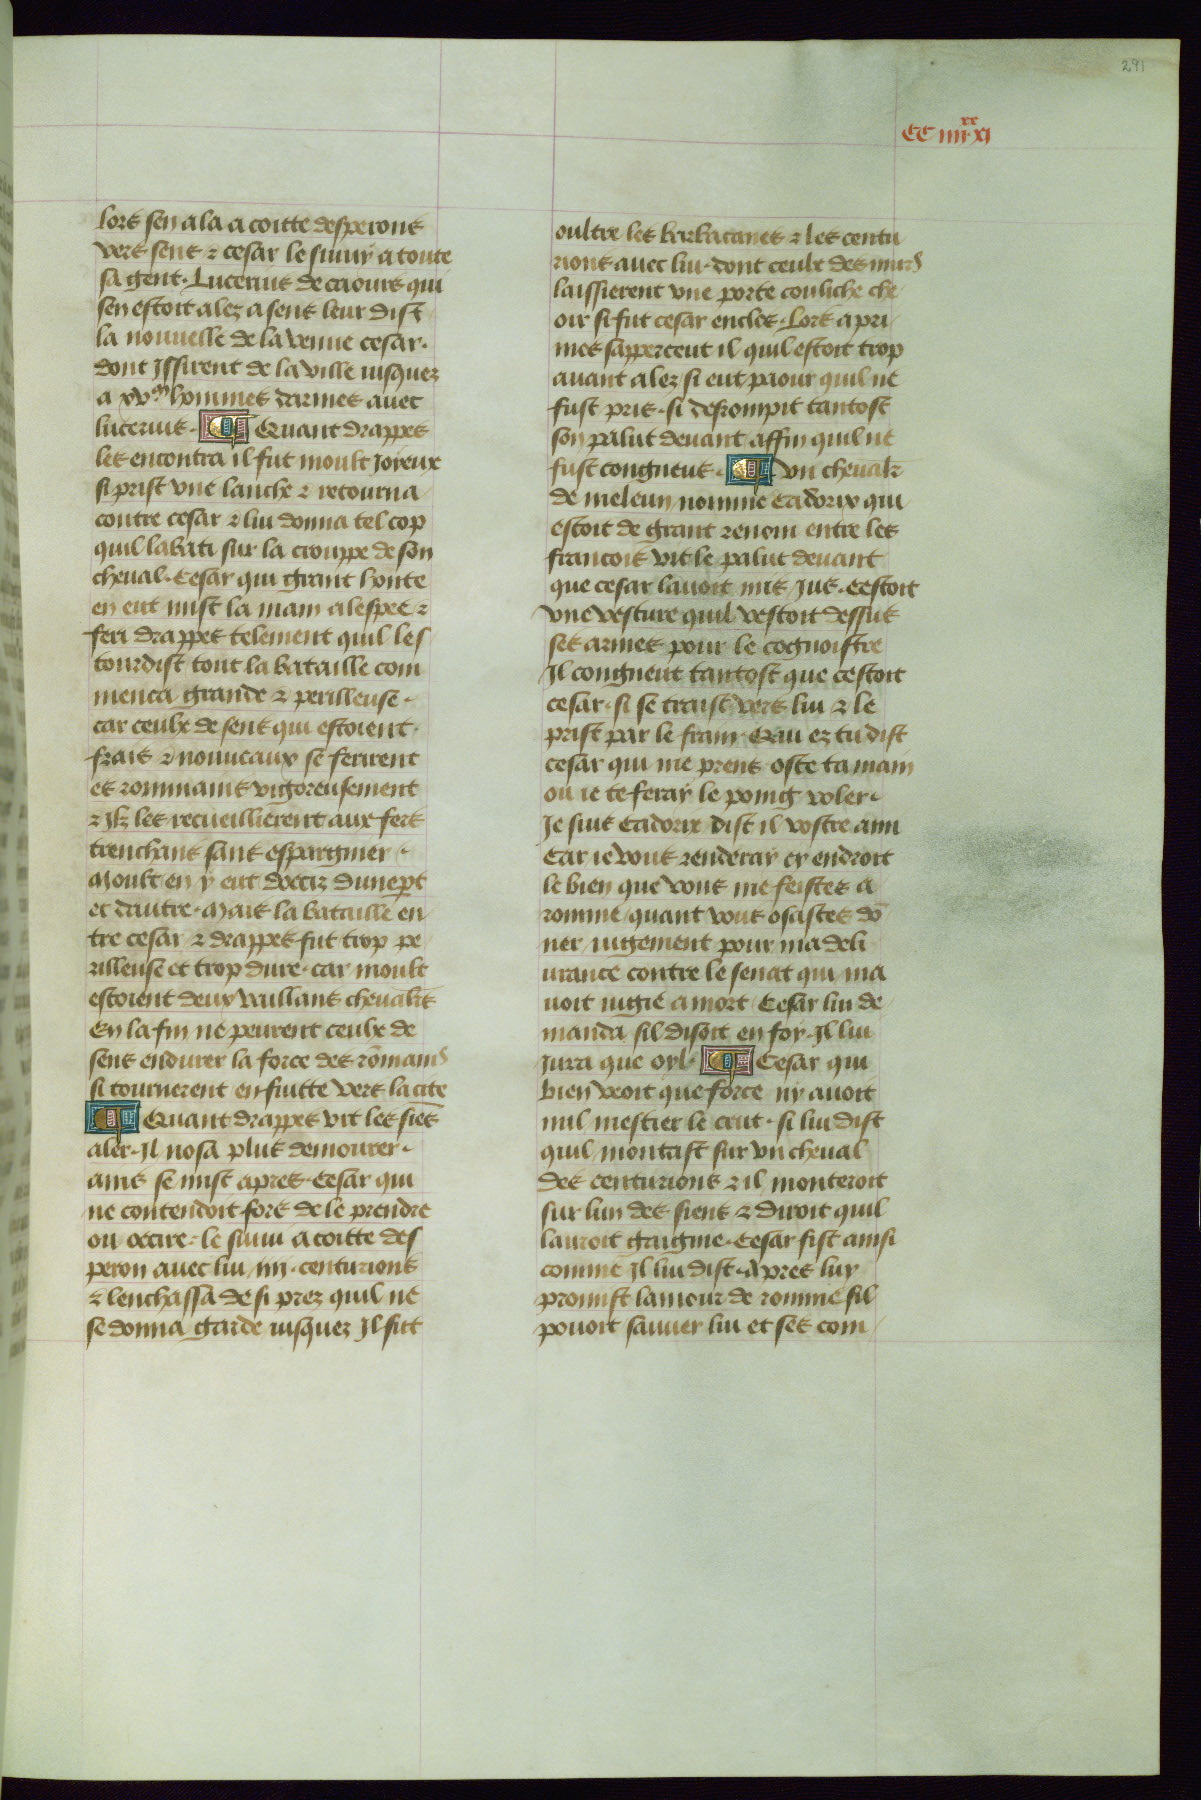 291
CC iiii xx xi
lors sen ala a coitte desperons
vers sens ⁊ cesar le suiuy a toute
sa gent. Lucerius de caours qui
sen estoit alez a sens leur dist
la nouuelle de la venue cesar.
dont Jssirent de la ville iusquez
a xv.m hommes darmes auec
lucerius. Quant drappes
les encontra il fut moult Joieux
si prist vne lanche ⁊ retourna
contre cesar ⁊ lui donna tel cop
quil labati sur la crouppe de son
cheual. Cesar qui grant honte
en eut mist la main alespee ⁊
feri drappes telement quil les
tourdist tout la bataille com
menca grande ⁊ perilleuse.
car ceulx de sens qui estoient.
frais ⁊ nouueaux se ferirent
es rommains vigoreusement
⁊ Jlz les recueillierent aux fers
trenchans sans espargnier.
Moult en y eut docciz dune pt
et dautre. Mais la bataille en
tre cesar ⁊ drappes fut trop pe
rilleuse et trop dure. car moult
estoient deux vaillans cheualrs
En la fin ne peurent ceulx de
sens endurer la force des romains
si tournerent en fuitte vers la cite
Quant drappes vit les siēs
aler. Jl nosa plus demourer.
ains se mist apres. Cesar qui
ne contendoit fors de le prendre
ou occire. le suiui a coitte des
peron auec lui .iiij. centurions
⁊ lenchassa de si prez quil ne
se donna garde iusquez Jl fut
oultre les barbacanes ⁊ les centu
rions auec lui. dont ceulx des murs
laissierent vne porte couliche che
oir si fut cesar enclos. Lors apri
mes sapperceut il quil estoit trop
auant alez si eut paour quil ne
fust pris. si desrompit tantost
son palut deuant affin quil ne
fust congneus. Vn cheualr
de meleun nomme Cadorix qui
estoit de grant renom entre les
francois vit le palut deuant
que cesar lauoit mis Jus. Cestoit
vne vesture quil vestoit dessus
ses armes pour le cognoistre
Jl congneut tantost que cestoit
cesar. si se traist vers lui ⁊ le
prist par le frain. Qui ez tu dist
cesar qui me prens oste ta main
ou ie te feray le poing voler.
Je suis Cadorix dist il vostre ami
Car ie vous renderay cy endroit
le bien que vous me feistes a
romme. quant vous osastes dō
ner iugement pour ma deli
urance contre le senat qui ma
uoit iugie a mort Cesar lui de
manda sil disoit en foy. Jl lui
jura que oyl. Cesar qui
bien veoit que force ny auoit
nul mestier le crut. si lui dist
quil montast sur vn cheual
des centurions ⁊ il monteroit
sur lun des siens ⁊ diroit quil
lauroit gaignie. Cesar fist ainsi
comme Jl lui dist. Apres luy
promist lamour de romme sil
pouoit sauuer lui et ses com